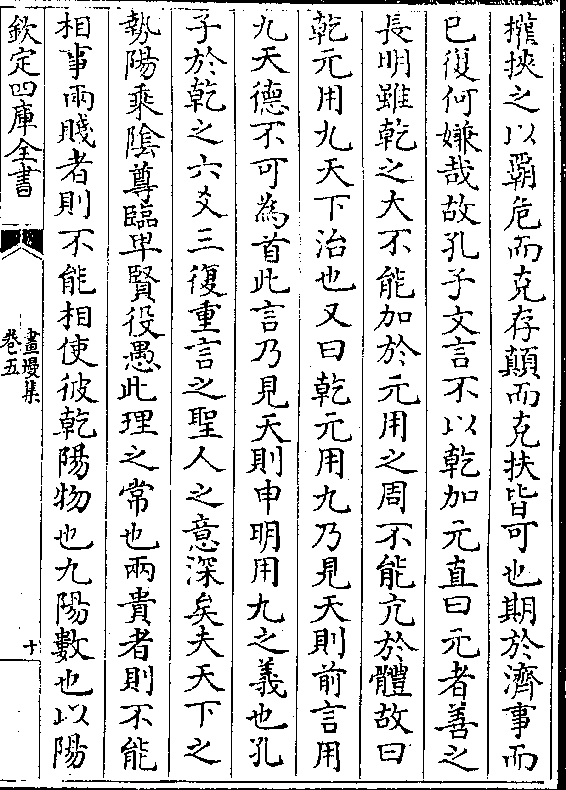 擁挾之以霸危而克存顛而克扶皆可也期於濟事而
已復何嫌哉故孔子文言不以乾加元直曰元者善之
長明雖乾之大不能加於元用之周不能亢於體故曰
乾元用九天下治也又曰乾元用九乃見天則前言用
九天德不可為首此言乃見天則申明用九之義也孔
子於乾之六爻三復重言之聖人之意深矣夫天下之
勢陽乘陰尊臨卑賢役愚此理之常也兩貴者則不能
相事兩賤者則不能相使彼乾陽物也九陽數也以陽
欽定四庫全書
畫墁集
卷五
十